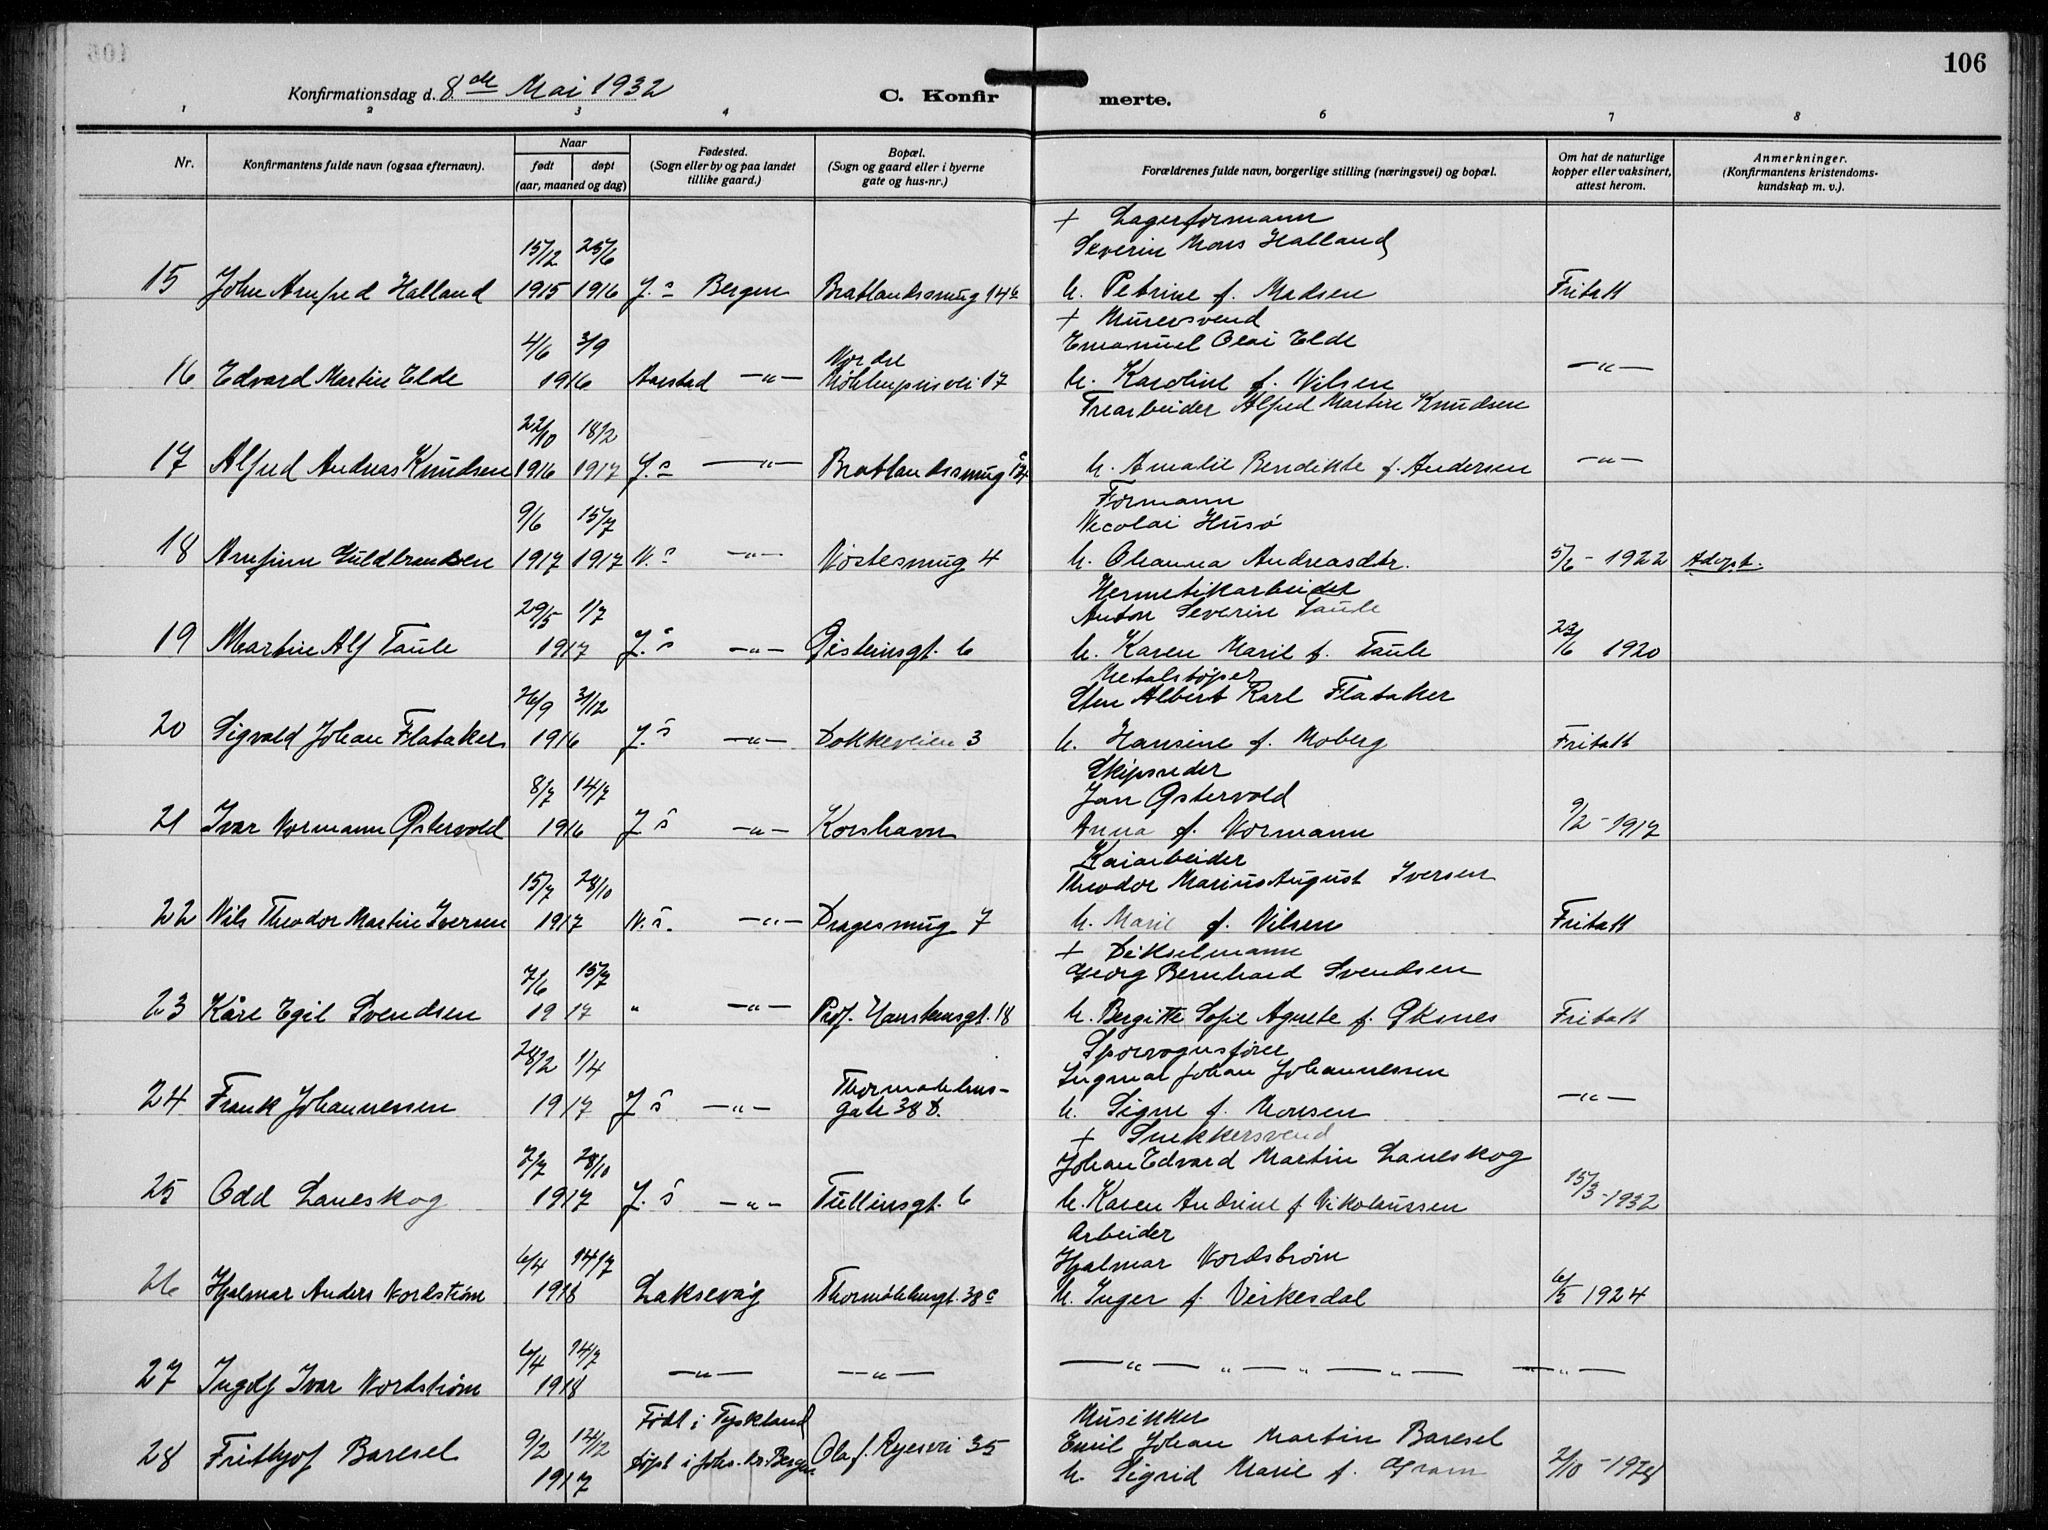 106
Konfirmationsdag d. 8de Mai 1932
C. Konfirmerte.
1 2 3 4 6 7 8
Nr.
Konfirmantens fulde navn (ogsaa efternavn).
Naar
født døpt
(aar, maaned og dag)
Fødested.
(Sogn eller by og paa landet
tillike gaard.)
Bopæl.
(Sogn og gaard eller i byerne
gate og hus-nr.)
Forældrenes fulde navn, borgerlige stilling (næringsvei) og bopæl.
Om hat de naturlige
kopper eller vaksinert,
attest herom.
Anmerkninger.
(Konfirmantens kristendoms-
kundskap m. v.).
+ Lagerformann
15/12 25/6 Severin Mons Halland
15 John Arnfred Halland 1915 1916 J. s Bergen Bratlandssmug 14 b h. Petrine f. Madsen Fritatt
+ Murersvend
4/6 3/9 Nordre Emanuel Olai Elde
16 Edvard Martin Elde 1916 Aarstad —"— Møhlenprisvei 17 h. Karoline f. Nilsen —"—
Trearbeider Alfred Martin Knudsen
22/10 18/2
17 Alfred Andreas Knudsen 1916 1917 J. s —"— Bratlandssmug h. Amalie Bendikte f. Andersen —"—
Formann
9/6 15/7 Nicolai Husø
18 Arnfinn Guldbrandsen 1917 1917 N. s —"— Nøstesmug 4 h. Oleanna Andreasdtr. 5/6 - 1922 Adopt.
Hermetikarbeider
29/5 1/7 Anton Severin Taule
19 Martin Alf Taule 1917 J. s —"— Østeinsgt. 6 h. Karen Marie f. Taule 23/6 1920
Metalstøper
26/9 31/12 Sten Albert Karl Flataker
20 Sigvald Johan Flataker 1916 J. s —"— Dokkeveien 3 h. Hansine f. Moberg Fritatt
Skipsreder
8/7 14/7 Jan Østervold
21 Ivar Normann Østervold 1916 J. s —"— Korshavn Anna f. Normann 9/2 - 1917
Kaiarbeider
15/7 28/10 Theodor Marius August Iversen
22 Nils Theodor Martin Iversen 1917 N. s. —"— Dragesmug 7 h. Marie f. Nilsen Fritatt
+ Dikselmann
7/6 15/7 Georg Bernhard Svendsen
23 Kåre Egil Svendsen 1917 " —"— Prof. Hansteensgt. 18 h. Bergitte Sofie Agnete f. Øksnes Fritatt
Sporvognsfører
28/2 1/4 Thormøhlens- Ingmar Johan Johannessen
24 Frank Johannessen 1917 J. s —"— gate 38 D. h. Signe f. Monsen —"—
+ Snekkersvend
7/7 28/10 Johan Edvard Martin Laneskog
25 Odd Laneskog 1917 J. s —"— Tullinsgt. 6 h. Karen Andrine f. Nikolaussen 15/3 - 1932
Arbeider
6/4 14/7 Hjalmar Nordstrøm
26 Hjalmar Anders Nordstrøm 1918 Laksevåg Thormøhlensgt. 38 c h. Inger f. Virkesdal 6/5 1924
6/4 14/7
27 Ingolf Ivar Nordstrøm 1918 —"— —"— —"— " —"— " — —"—
Født i Tyskland Musikker
9/2 12/12 Emil Johan Martin Baresel
28 Frithjof Baresel 1917 døpt i Johs. kr. Bergen Olaf Ryesvei 35 h. Sigrid Marie f. Gram 2/10 - 1928